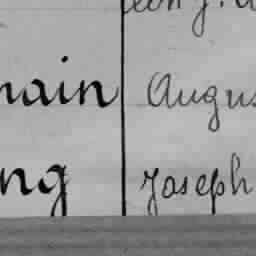 main Augus
ng Joseph